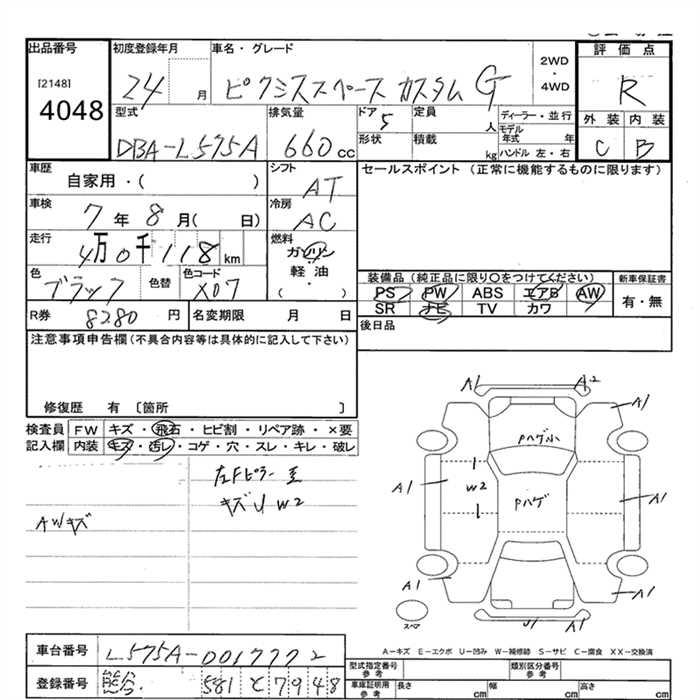 出品番号 初度登録年月 車名・グレード 2WD・4WD 評価点
[2148]
4048
24 月 ピクシススペース カスタム G R
型式 排気量 ドア 定員 人 ディーラー・並行 外装 内装
DBA-L575A 660cc 5 形状 積載 kg モデル年式 年 ハンドル 左・右 C B
車歴 シフト セールスポイント (正常に機能するものに限ります)
自家用・( ) AT
車検 7年8月( 日) 冷房 AC
走行 4万0千118km 燃料 ガソリン
軽油
・( )
色 ブラック 色替 色コード X07
装備品 (純正品に限り○をつけてください) 新車保証書
PS PW ABS エアB AW 有・無
SR ナビ TV カワ
R券 8280円 名変期限 月 日 後日品
注意事項申告欄(不具合内容等は具体的に記入して下さい)
修復歴 有 〔箇所 〕
検査員 FW キズ・飛石・ヒビ割・リペア跡・×要
記入欄 内装 キズ・汚レ・コゲ・穴・スレ・キレ・破レ
左Fピラー
キズ U W2
AWキズ
A1 A2
A1
Pハゲ小
A1 W2 Pハゲ A1
A1 A1
U1 A1
スペア
A-キズ E-エクボ U-凹み W-補修跡 S-サビ C-腐食 XX-交換済
車台番号 L575A-0017772
型式指定番号 参考 類別区分番号 参考
登録番号 581 と 7948
車庫証明用 参考 長さ cm 幅 cm 高さ cm